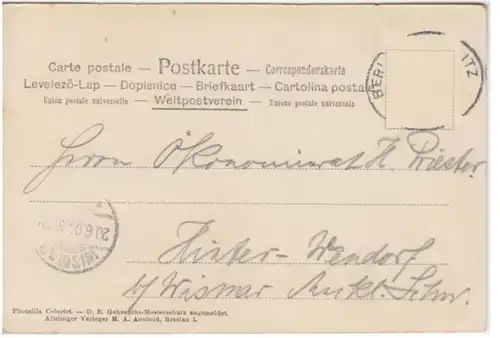 Carte postale — Postkarte — Correspondenzkarte
Levelező-Lap — Dopisnice — Briefkaart — Cartolina postal
Union postale universelle — Weltpostverein — Unione postale universale
BER ITZ
Herrn Ökonomierat H. Priester
WISMAR
20.6.0
Hinter-Wendorf
b/ Wismar
Photolila Coloriri. — D. R. Gebrauchs-Musterschutz angemeldet.
Alleiniger Verleger M. A. Arnhold, Breslau I.